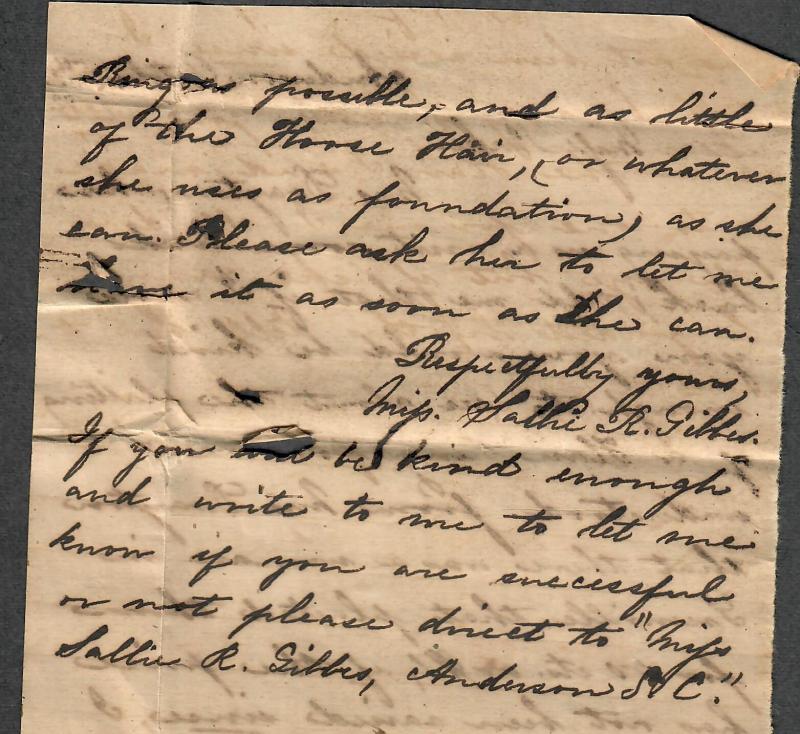 Ring as possible, and as little
of the Horse Hair, (or whatever
she uses as foundation) as she
can. Please ask her to let me
have it as soon as she can.
Respectfully yours,
Miss. Sallie R. Gibbes.
If you will be kind enough
and write to me to let me
know if you are successful
or not please direct to "Miss
Sallie R. Gibbes, Anderson S. C."